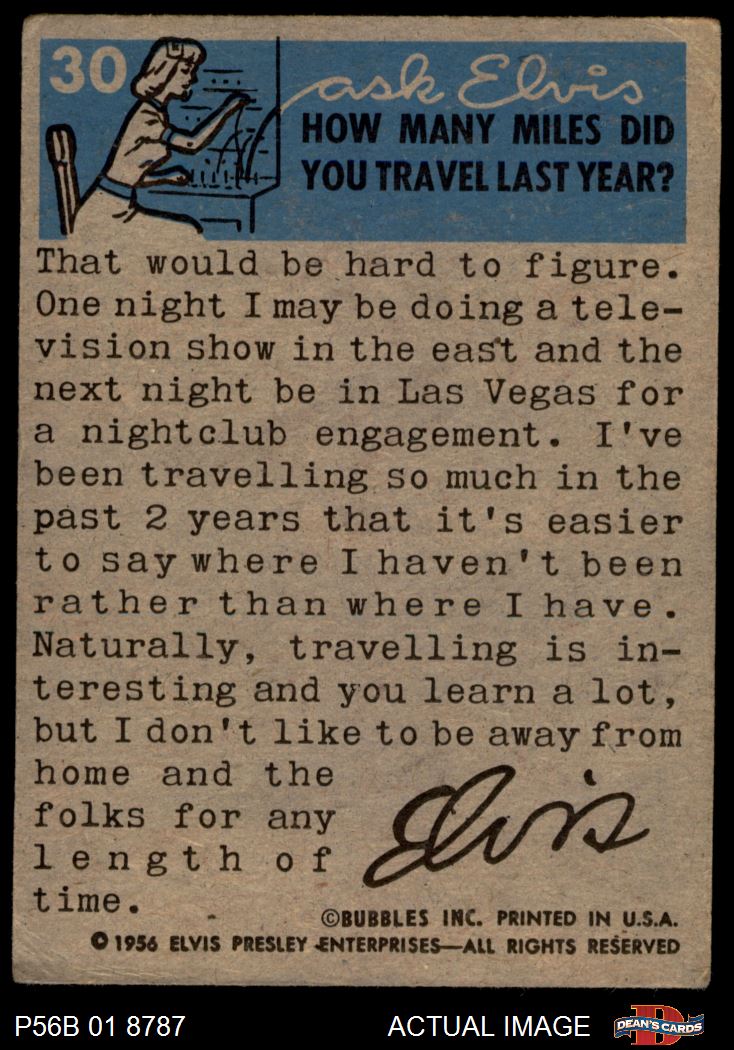 30
ask Elvis
HOW MANY MILES DID
YOU TRAVEL LAST YEAR?
That would be hard to figure.
One night I may be doing a tele-
vision show in the east and the
next night be in Las Vegas for
a nightclub engagement. I've
been travelling so much in the
past 2 years that it's easier
to say where I haven't been
rather than where I have.
Naturally, travelling is in-
teresting and you learn a lot,
but I don't like to be away from
home and the
folks for any
length of
time.
Elvis
©BUBBLES INC. PRINTED IN U.S.A.
© 1956 ELVIS PRESLEY ENTERPRISES—ALL RIGHTS RESERVED
P56B 01 8787
ACTUAL IMAGE
D
DEAN'S CARDS